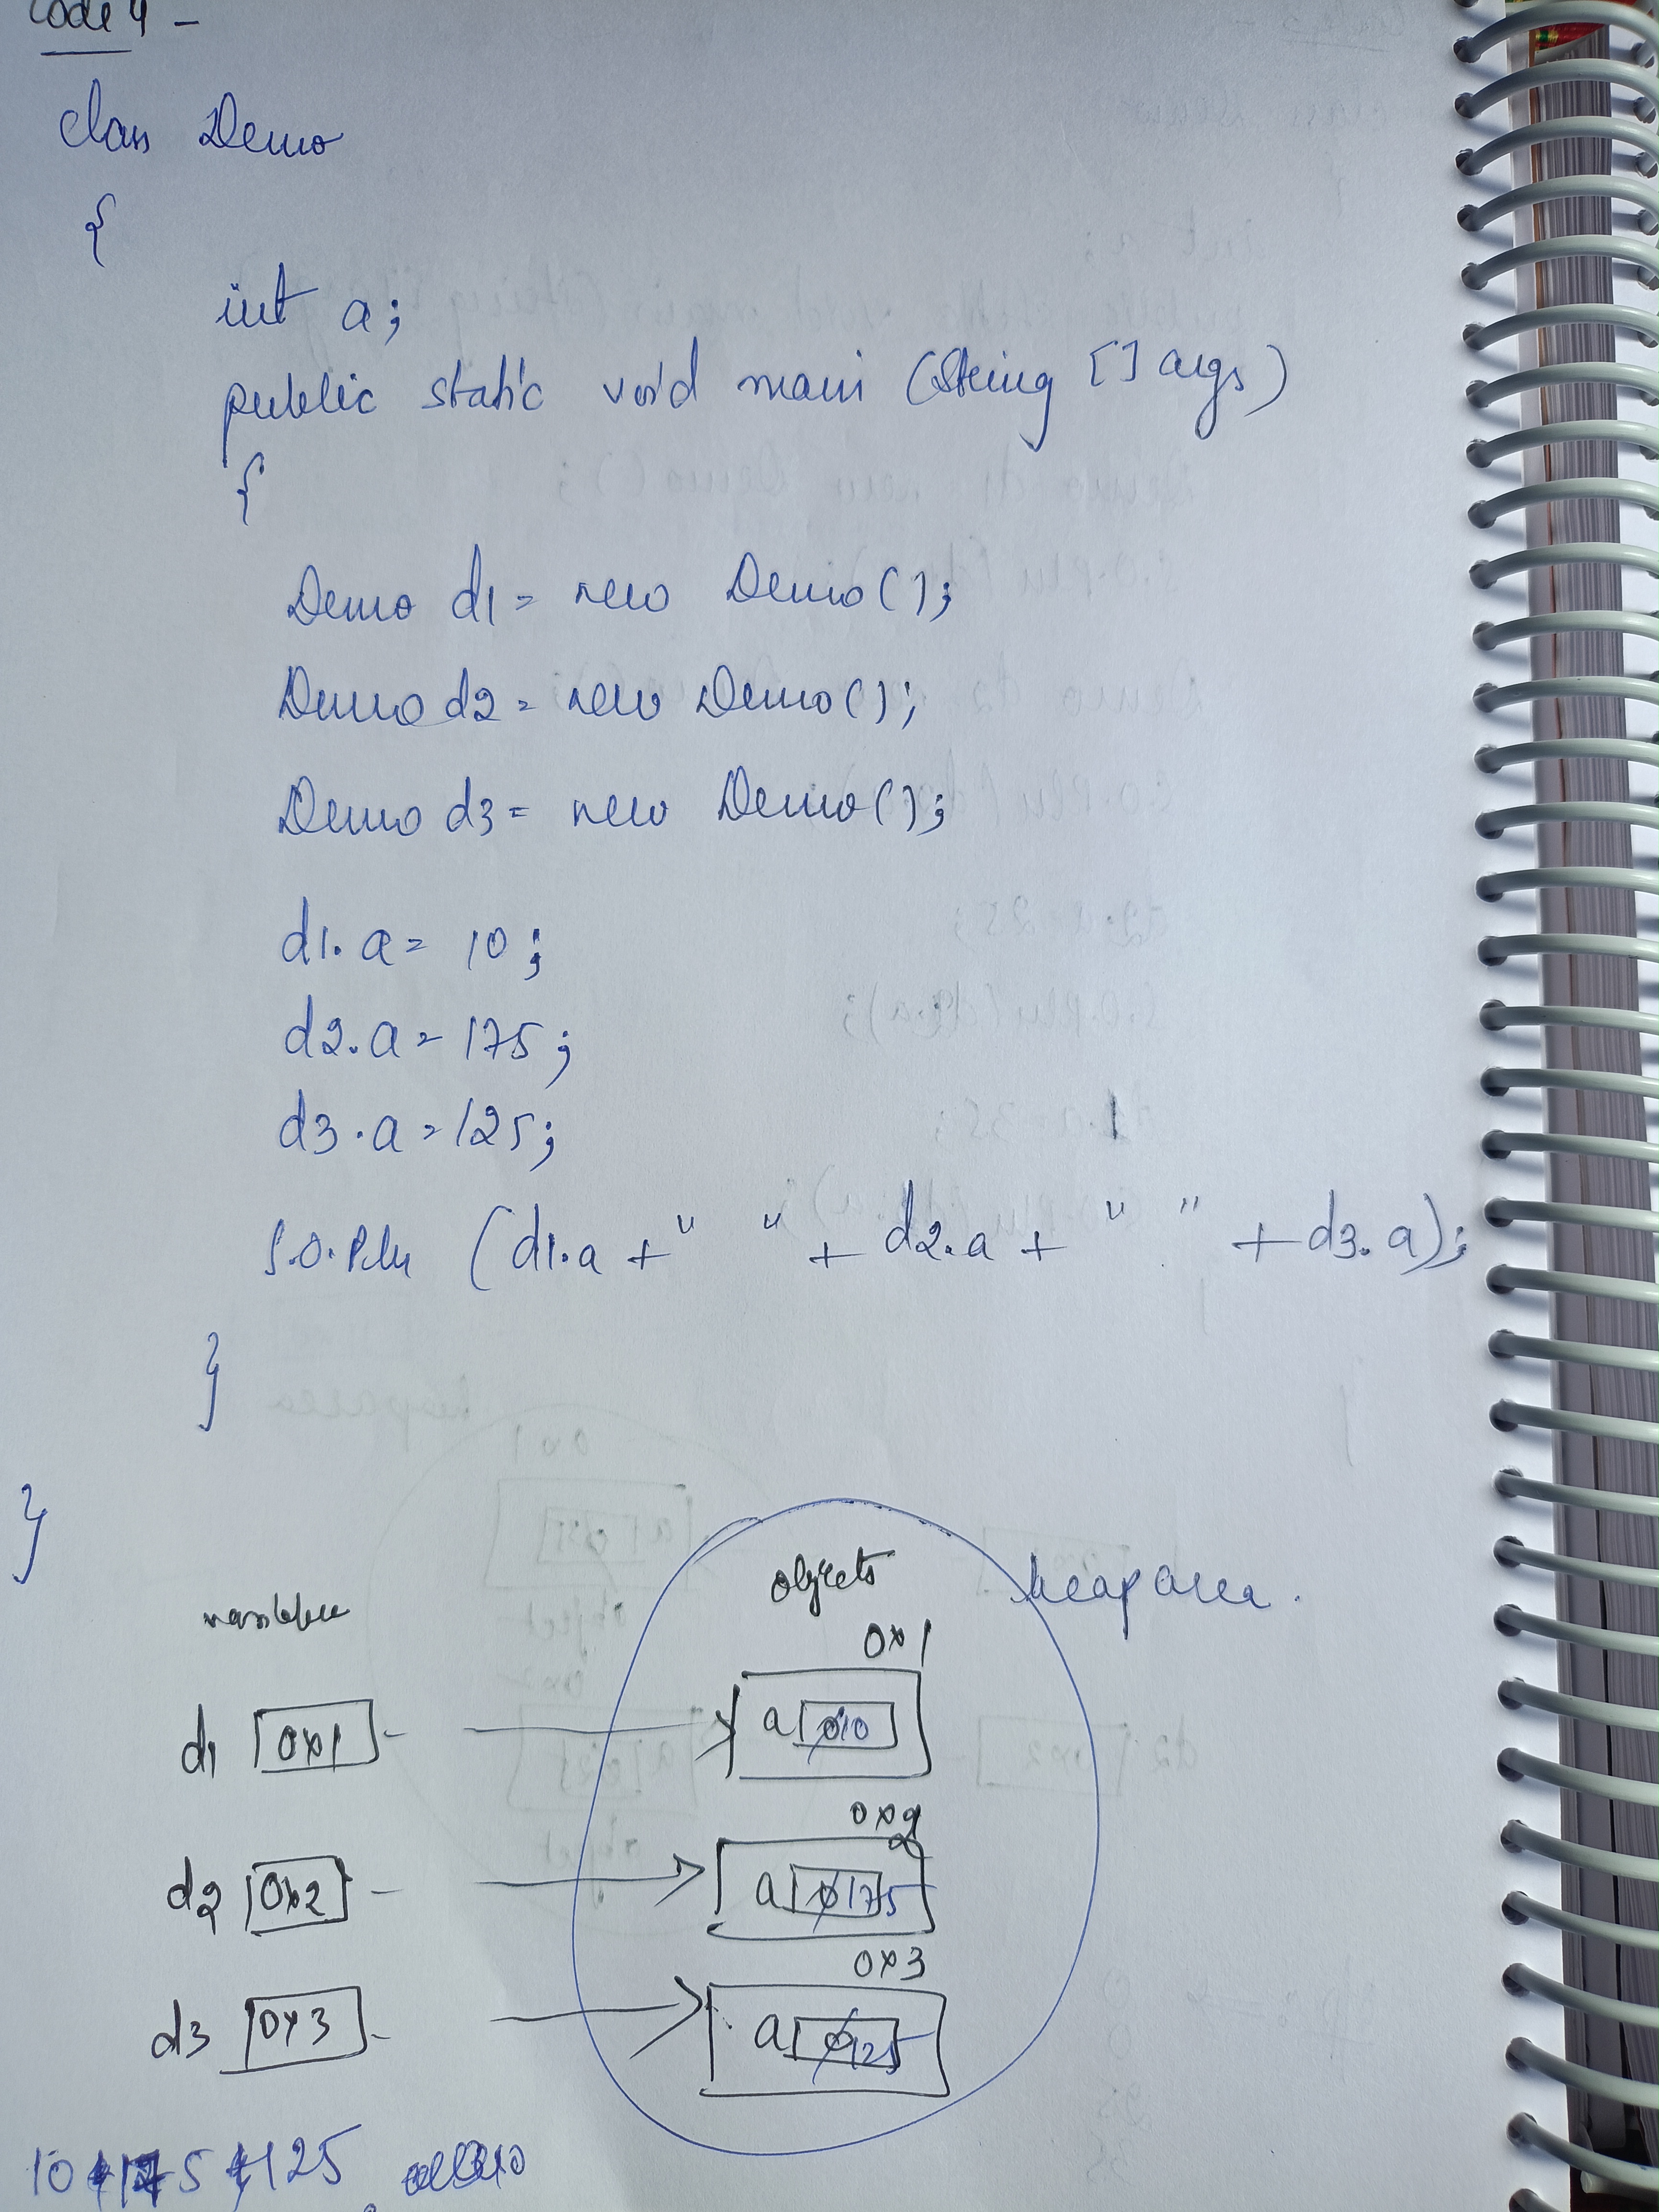 Code 4 -
class Demo
{
int a;
public static void main (String [] args)
{
Demo d1 = new Demo();
Demo d2 = new Demo();
Demo d3 = new Demo();
d1.a = 10;
d2.a = 175;
d3.a = 125;
S.O.Pln (d1.a + " " + d2.a + " " + d3.a);
}
}
objects heap area.
variable
0x1
d1 0x1 a 0 10
0x2
d2 0x2 a 0 175
0x3
d3 0x3 a 0 125
10 175 125